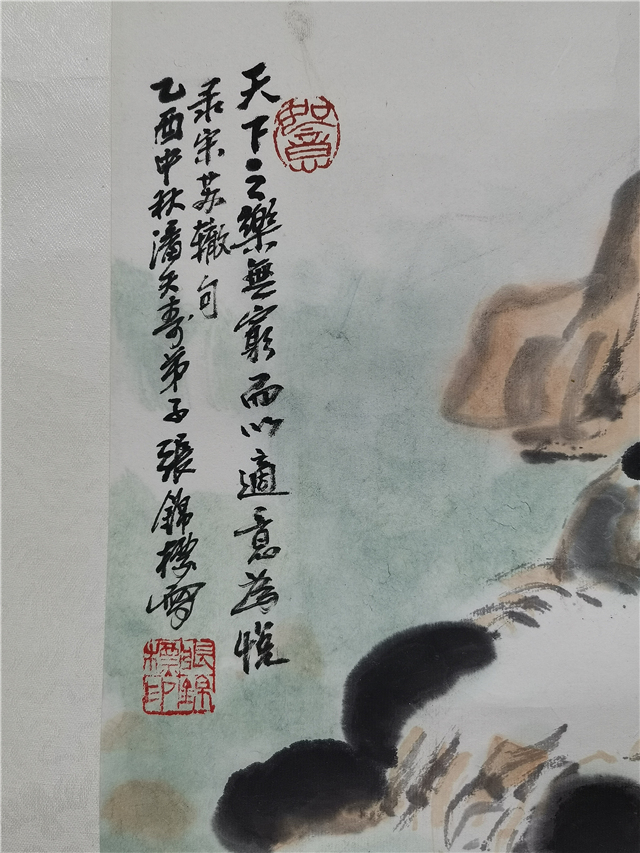 天下之樂無窮而以適意為悅
录宋苏轍句
乙酉中秋潘天壽弟子張錦標寫
如意
張錦標印